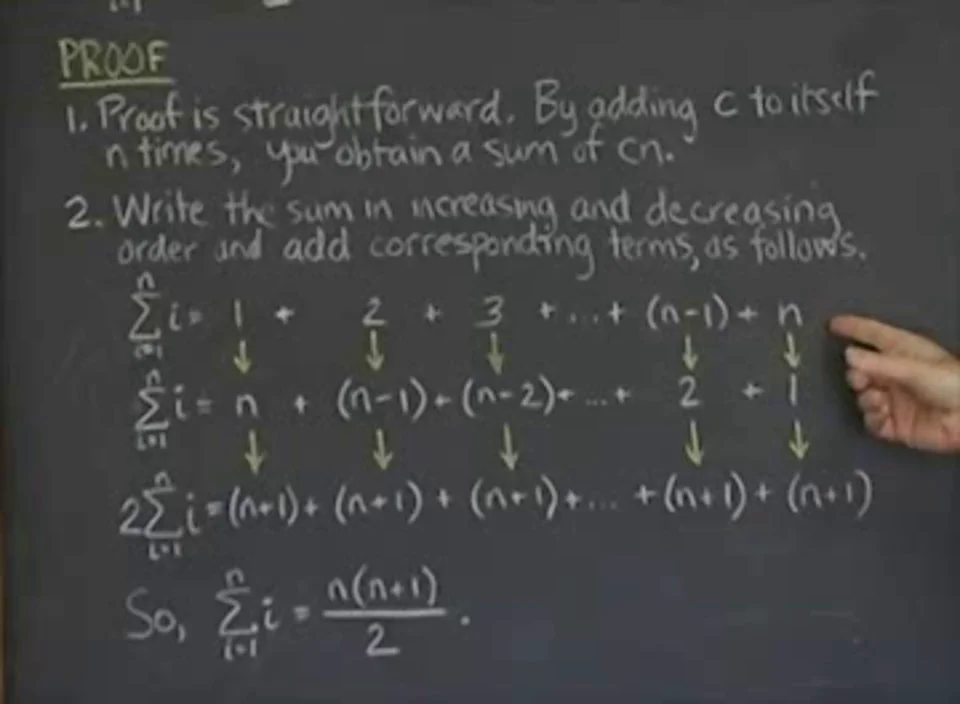 PROOF
1. Proof is straightforward. By adding c to itself
n times, you obtain a sum of cn.
2. Write the sum in increasing and decreasing
order and add corresponding terms, as follows.
n
∑ i = 1 + 2 + 3 + ... + (n-1) + n
i=1
↓ ↓ ↓ ↓ ↓
n
∑ i = n + (n-1) + (n-2) + ... + 2 + 1
i=1
↓ ↓ ↓ ↓ ↓
n
2∑ i = (n+1) + (n+1) + (n+1) + ... + (n+1) + (n+1)
i=1
n
So, ∑ i = n(n+1)/2 .
i=1